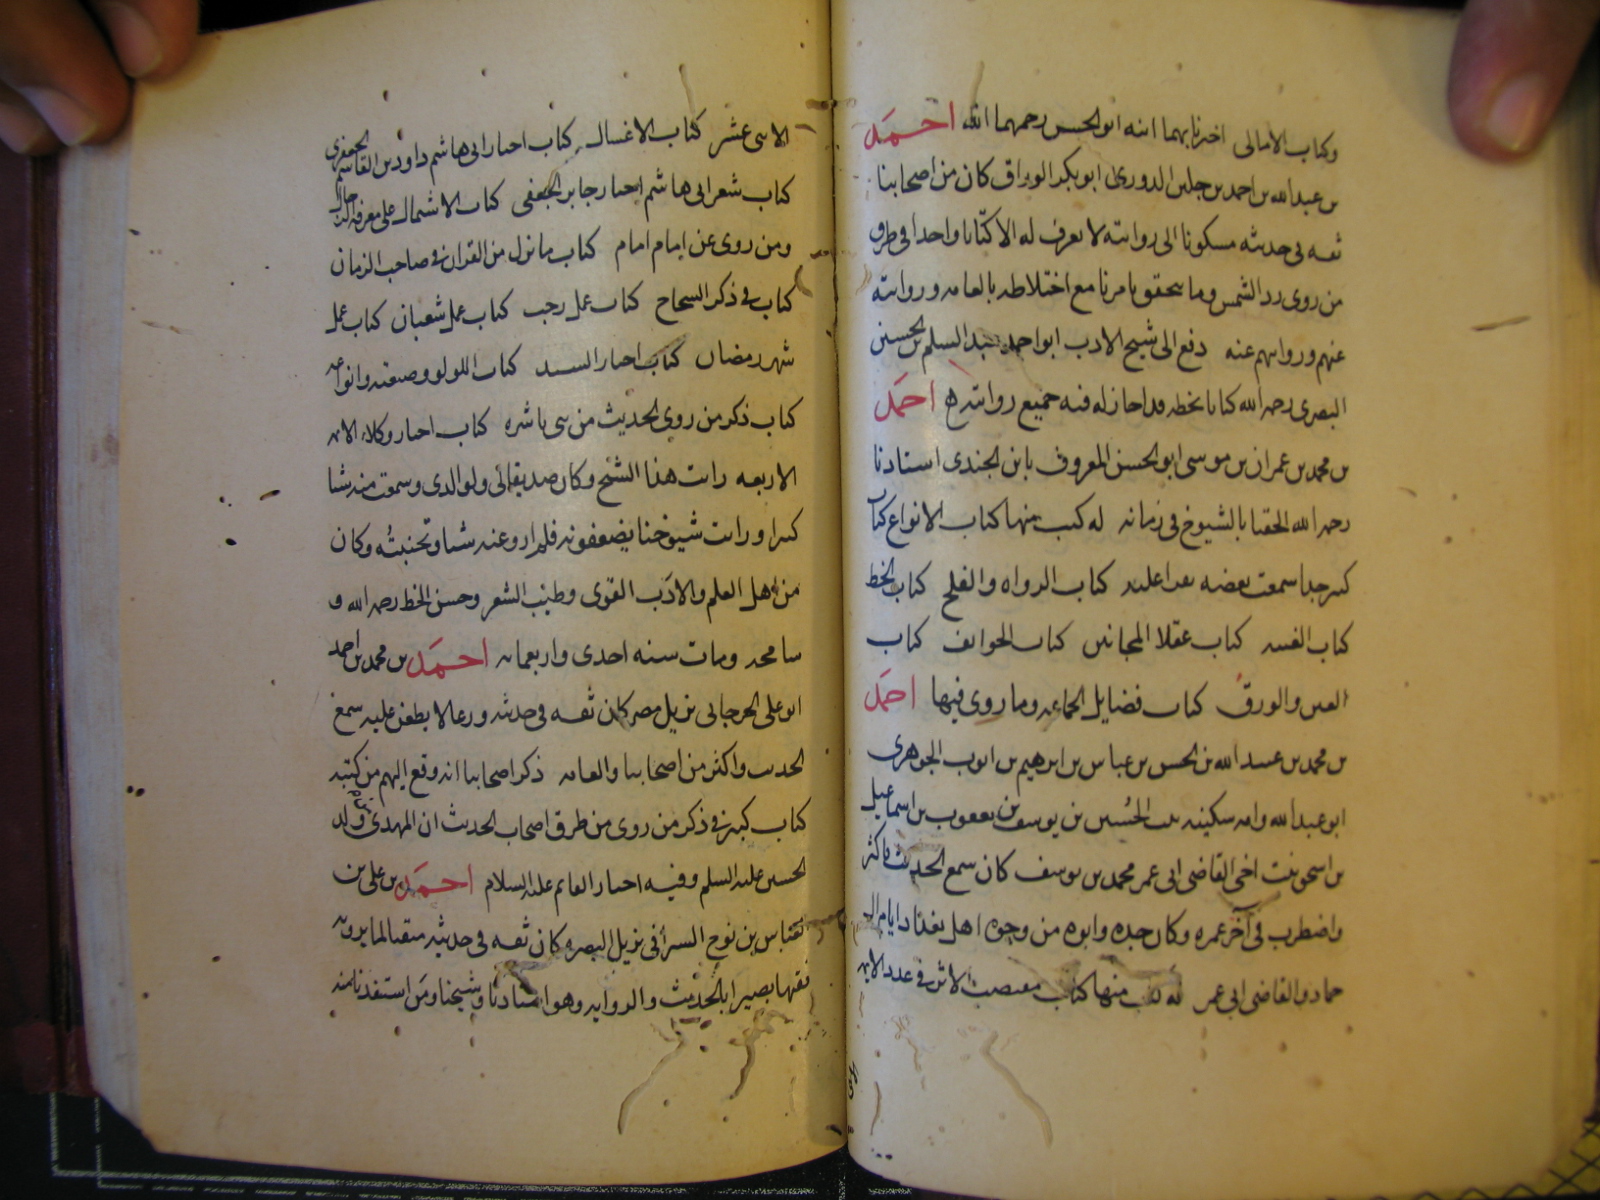 وكتاب الامالى اخبرنا بهما ابنه ابو الحسن رحمهما الله احمد
بن عبدالله بن احمد بن جلين الدورى ابو بكر الوراق كان من اصحابنا
ثقه فى حديثه مسكونا الى روايته لا نعرف له الا كتابا واحدا فى طرق
من روى رد الشمس وما يتحقق بامرنا مع اختلاطه بالعامه وروايته
عنهم وروايتهم عنه دفع الى شيخ الادب ابو احمد عبد السلم بن الحسين
البصرى رحمه الله كتابا بخطه قد اجاز له فيه جميع روايته احمد
بن محمد بن عمران بن موسى ابو الحسن المعروف بابن الجندى استادنا
رحمه الله الحقنا بالشيوخ فى زمانه له كتب منها كتاب الانواع كتاب
كبير جدا سمعت بعضه يقرا عليه كتاب الرواه والفلج كتاب الخط
كتاب الغيبه كتاب عقلا المجانين كتاب الهواتف كتاب
العين والورق كتاب فضايل الجماعه وما روى فيها احمد
بن محمد بن عبيد الله بن الحسن بن عياس بن ابرهيم بن ايوب الجوهرى
ابو عبدالله وامه سكينه بنت الحسين بن يوسف بن يعقوب بن اسماعيل
بن اسحق بنت اخى القاضى ابى عمر محمد بن يوسف كان سمع الحديث فاكثر
واضطرب فى آخر عمره وكان جده وابوه من وجوه اهل بغداد ايام ال
حماد والقاضى ابى عمر له كتب منها كتاب مقتضب الاثر فى عدد الايمه
الاثنى عشر كتاب الاغسال كتاب اخبار ابى هاشم داود بن القاسم الجعفرى
كتاب شعر ابى هاشم اخبار جابر الجعفى كتاب الاشتمال على معرفه الرجال
ومن روى عن امام امام كتاب ما نزل من القران فى صاحب الزمان
كتاب فى ذكر الشجاج كتاب عمل رجب كتاب عمل شعبان كتاب عمل
شهر رمضان كتاب اخبار السيد كتاب اللولو وصنعته وانواعه
كتاب ذكر من روى الحديث من بنى ناشره كتاب اخبار وكلاء الايمه
الاربعه رايت هذا الشيخ وكان صديقا لى ولوالدى وسمعت منه شيا
كثيرا ورايت شيوخنا يضعفونه فلم ارو عنه شيا وتجنبته وكان
من اهل العلم والادب القوى وطيب الشعر وحسن الخط رحمه الله و
سامحه ومات سنه احدى واربعمايه احمد بن محمد بن احمد
ابو على الجرجانى نزيل مصر كان ثقه فى حديثه ورعا لا يطعن عليه سمع
الحديث واكثر من اصحابنا والعامه ذكر اصحابنا انه وقع اليهم من كتبه
كتاب كبير فى ذكر من روى من طرق اصحاب الحديث ان المهدى من ولد
الحسين عليه السلم وفيه اخبار القايم عليه السلام احمد بن على بن
عباس بن نوح السيرافى نزيل البصره كان ثقه فى حديثه متقنا لما يرويه
فقيها بصيرا بالحديث والروايه وهو استادنا وشيخنا ومن استفدنا منه